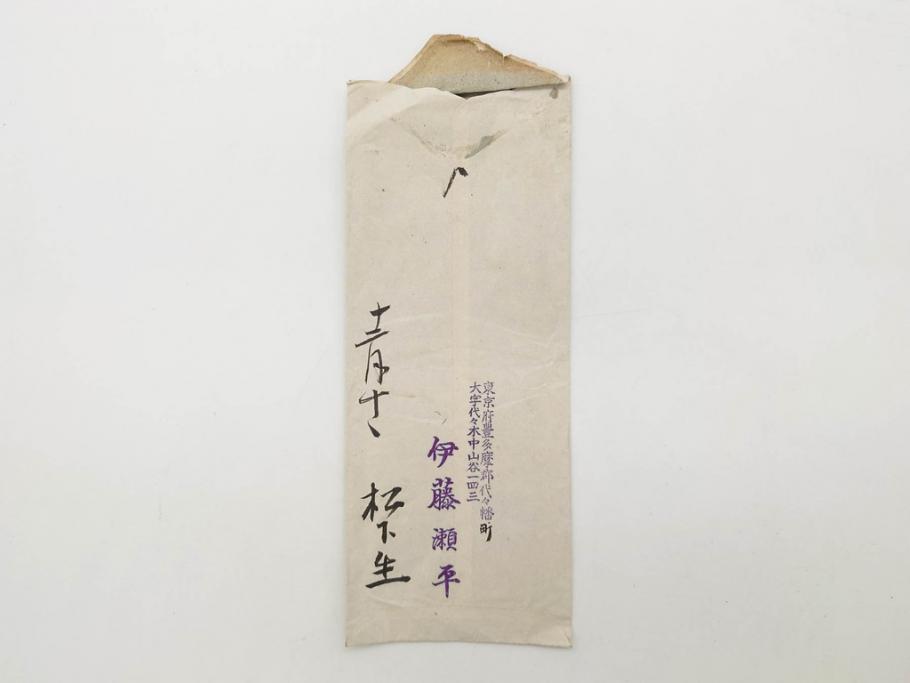 東京府豊多摩郡代々幡町
大字代々木中山谷一四三
伊藤瀬平
十二月十
松下生